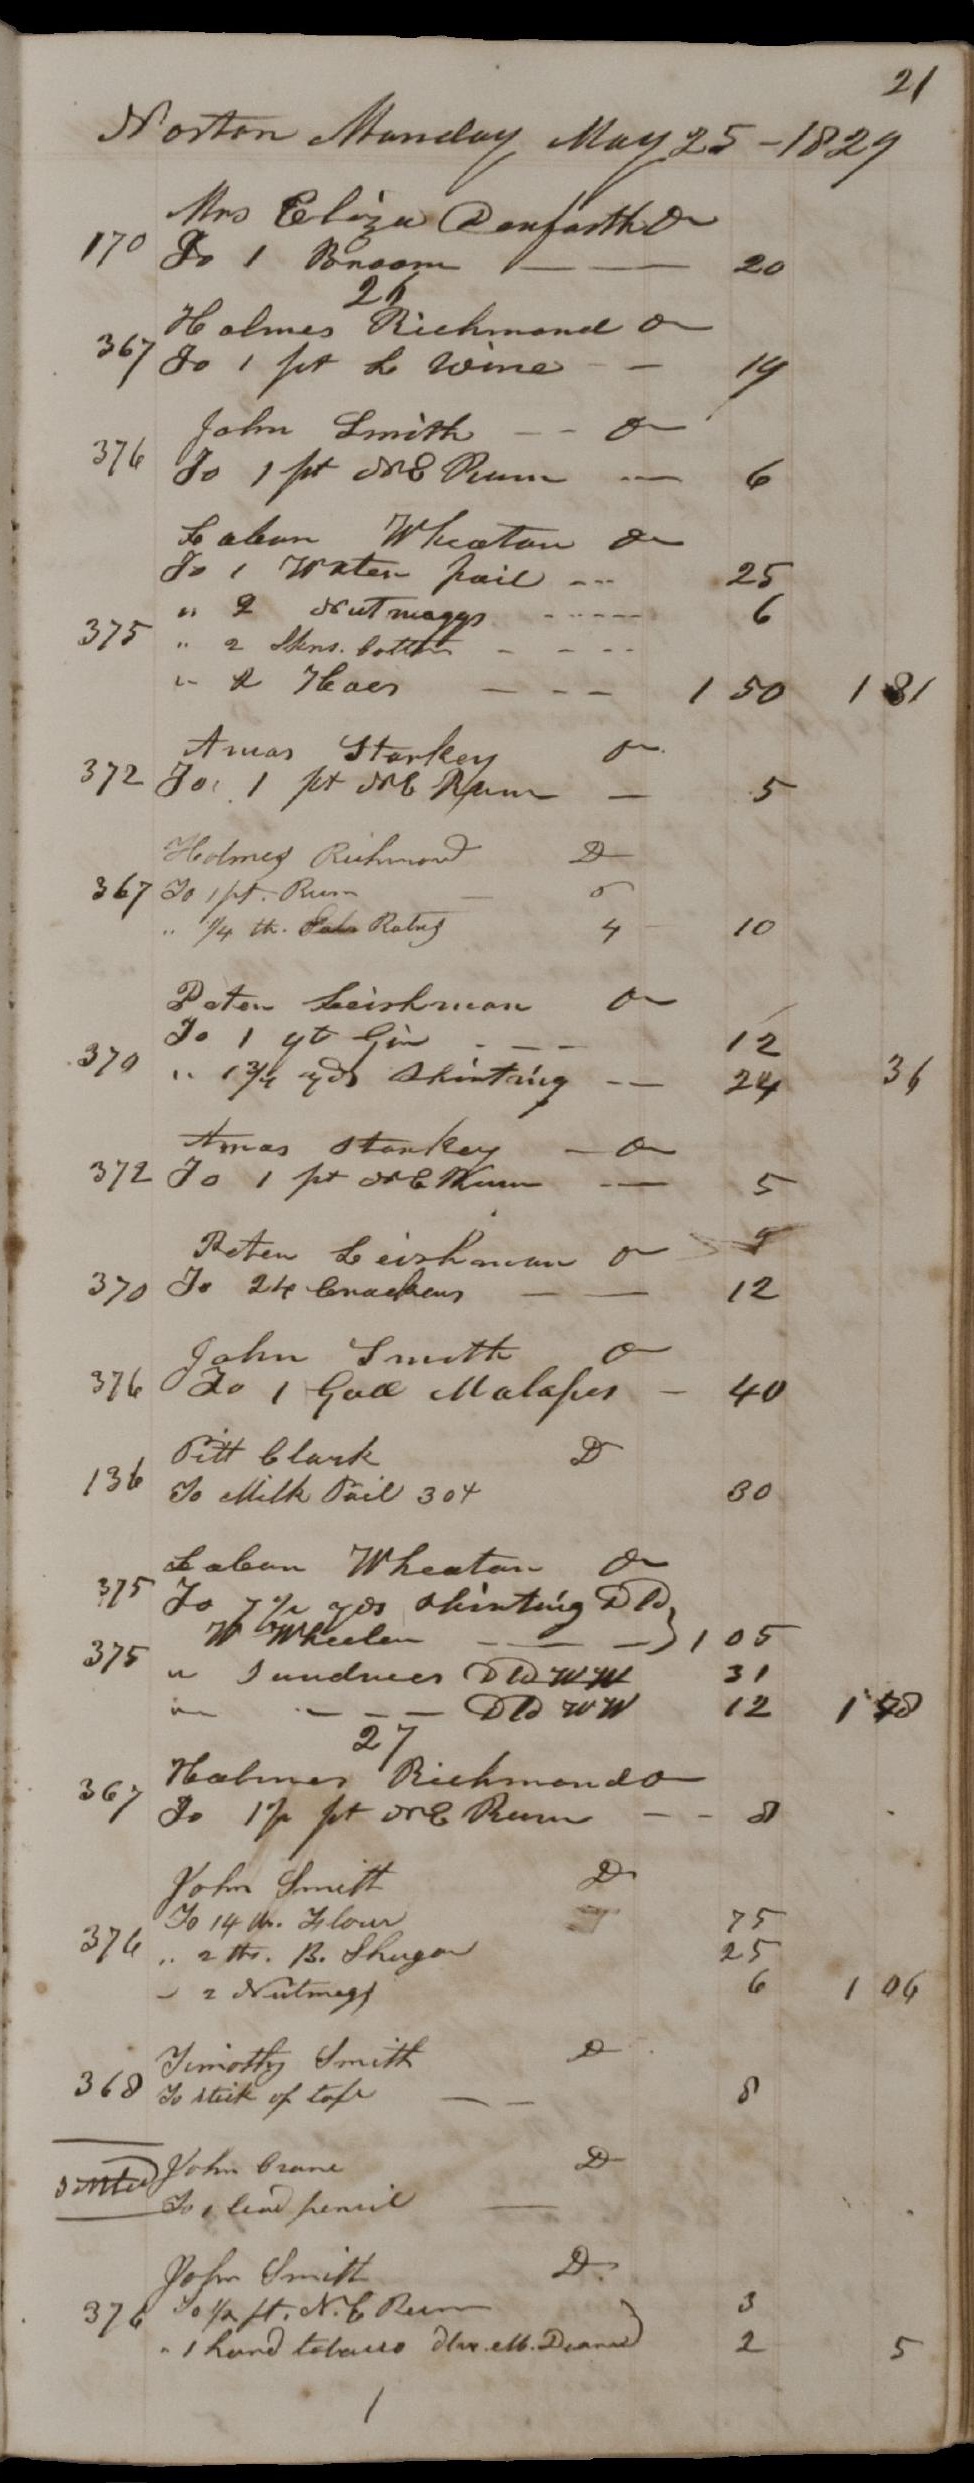 21
Norton Monday May 25 - 1829
Mrs Eliza Danforth Dr
170 To 1 Broom — — 20
26
Holmes Richmond Dr
367 To 1 pt L Wine - — 19
John Smith - - Dr
376 To 1 pt NE Rum — 6
Laban Wheaton Dr
To 1 Water pail --- 25
" 2 Nutmaggs ----- 6
375 " 2 Skns. Cotton - - --
" 2 Hoes — - - - 1 50 1 81
Amos Starkey Dr
372 To 1 pt NE Rum — 5
Holmes Richmond D
367 To 1 pt. Rum — 6
" 1/4 lb. Ratus 4 10
Peter Leishman Dr
To 1 qt Gin - — - 12
370 " 1 3/4 yds Shirting -- 24 36
Amos Starkey - Dr
372 To 1 pt NE Rum -— 5
Peter Leishman Dr
370 To 24 Crackers — — 12
John Smith Dr
376 To 1 Gall Molases - 40
Pitt Clark D
136 To Milk Pail 30 30
Laban Wheaton Dr
375 To 7 1/2 yds Shirting Dld
W Wheeler — — - } 1 05
375 " Sundries Dld WW 31
" - — - — Dld WW 12 1 48
27
Holmes Richmond Dr
367 To 1 1/2 pt NE Rum — - 8
John Smith D
To 14 lb. Flour 75
376 " 2 lbs. B. Shugar 25
" 2 Nutmegs 6 1 06
Timothy Smith D
368 To stick of — - 8
Settled John Crane D
To 1 lead pencil —
John Smith D
376 To 1/2 pt. N. E Rum 3
" 1 hand tobacco dlvr. M. 2 5
1